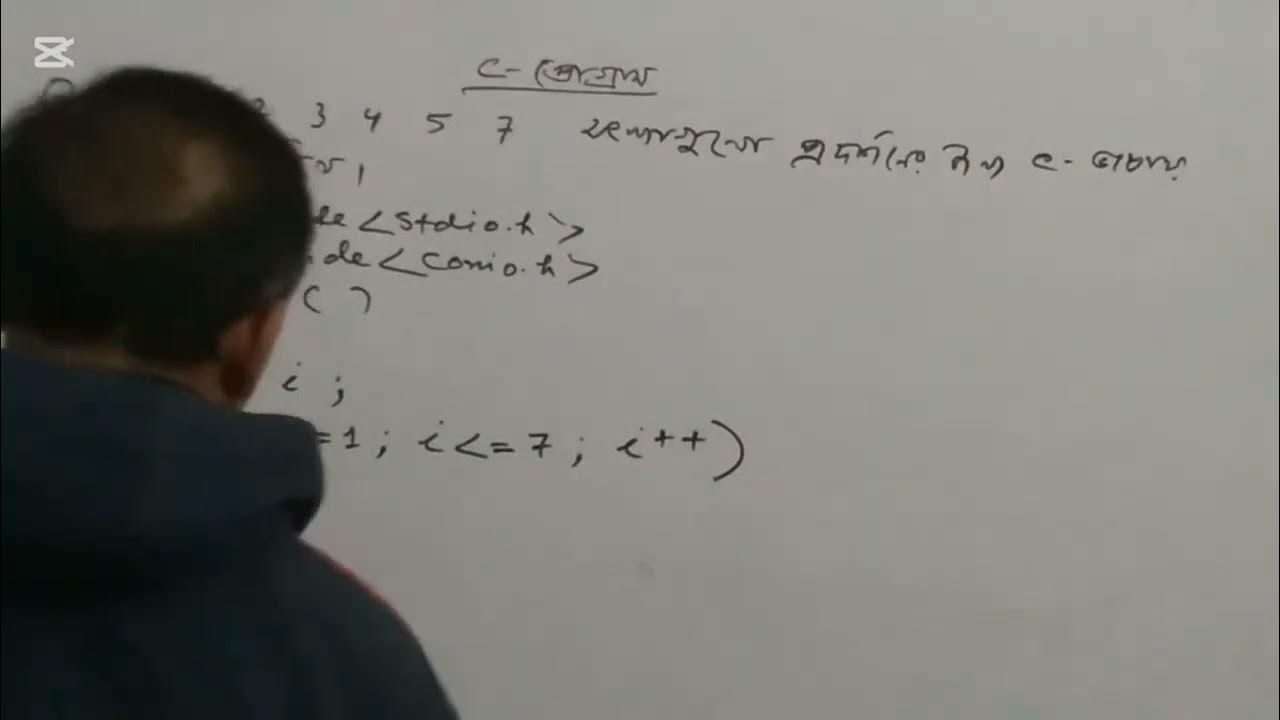 C- প্রোগ্রাম
2 3 4 5 7 সংখ্যাগুলো প্রদর্শনের জন্য C-
de <stdio.h>
de <conio.h>
( )
i ;
=1 ; i <= 7 ; i++)